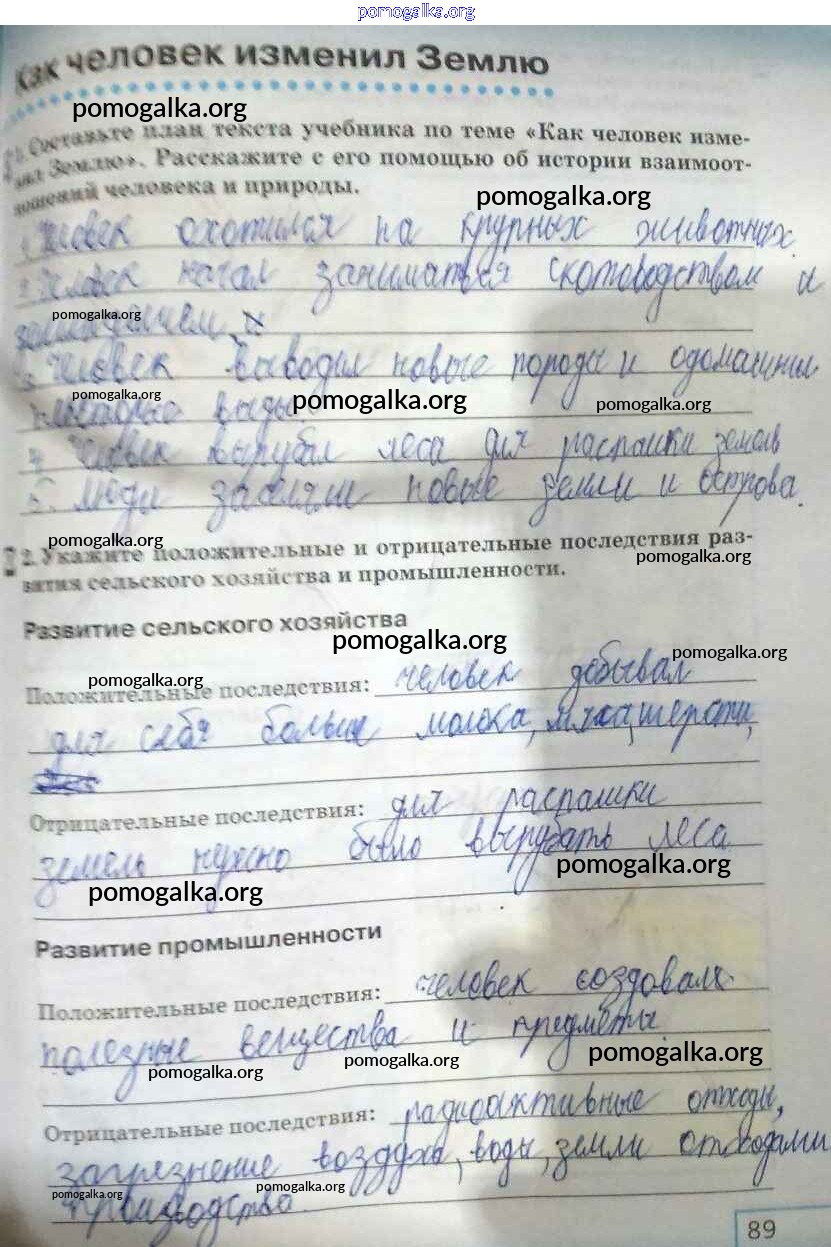 pomogalka.org
Как человек изменил Землю
pomogalka.org
1. Составьте план текста учебника по теме «Как человек изме-
нил Землю». Расскажите с его помощью об истории взаимоот-
pomogalka.org
ношений человека и природы.
1. Человек охотился на крупных животных.
2. Человек начал заниматься скотоводством и
pomogalka.org
земледелием
3. Человек выводил новые породы и одомашнил
pomogalka.org pomogalka.org pomogalka.org
некоторые виды.
4. Человек вырубал леса для распашки земель
5. Люди заселяли новые земли и острова.
pomogalka.org
2. Укажите положительные и отрицательные последствия раз-
pomogalka.org
вития сельского хозяйства и промышленности.
Развитие сельского хозяйства
pomogalka.org
pomogalka.org
pomogalka.org
Положительные последствия: человек добывал
для себя больше молока, мяса, шерсти,
Отрицательные последствия: для распашки
земель нужно было вырубать леса
pomogalka.org
pomogalka.org
Развитие промышленности
Положительные последствия: человек создовал
полезные вещества и предметы.
pomogalka.org pomogalka.org pomogalka.org
Отрицательные последствия: радиоактивные отходы,
загрезнение воздуха, воды, земли отходами
pomogalka.org pomogalka.org
производства.
89